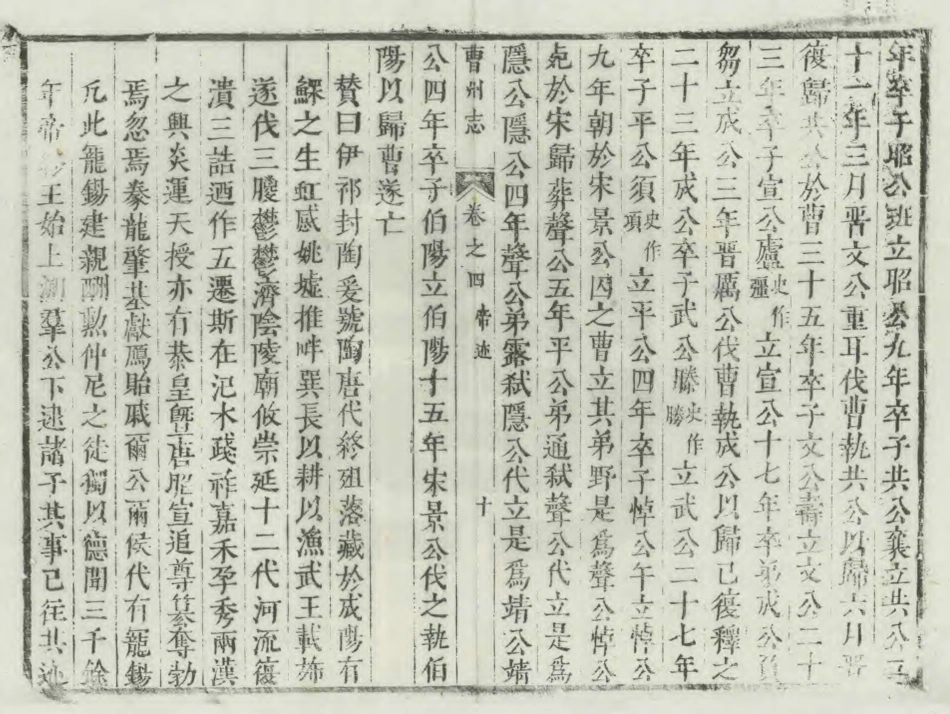 年卒子昭公班立昭公九年卒子共公襄立共公二
十一年三月晋文公重耳伐曹執共公以歸六月晋
復歸共公於曹三十五年卒子文公壽立文公二十
三年卒子宣公廬史作彊立宣公十七年卒弟成公負
芻立成公三年晉厲公伐曹執成公以歸已復釋之
二十三年成公卒子武公滕史作勝立武公二十七年
卒子平公須史作項立平公四年卒子悼公午立悼公
九年朝於宋景公囚之曹立其弟野是爲聲公悼公
死於宋歸葬聲公五年平公弟通弑聲公代立是爲
隱公隱公四年聲公弟露弑隱公代立是爲靖公靖
曹州志 卷之四 帝迹 十
公四年卒子伯陽立伯陽十五年宋景公伐之執伯
陽以歸曹遂亡
贊曰伊祁封陶爰號陶唐代終殂落藏於成陽有
鰥之生虹感姚墟推畔巽長以耕以漁武王載斾
遂伐三朡鬱鬱濟陰陵廟攸崇延十二代河流復
潰三誥迺作五遷斯在汜水踐祚嘉禾孕秀兩漢
之興炎運天授亦有恭皇曁唐昭宣追尊簒奪勃
焉忽焉豢龍肇基獻馬貽戚爾公爾侯代有寵錫
凡此寵錫建親酬勲仲尼之徒獨以德聞三千餘
年帝王始上溯羣公下逮諸子其事已往其迹